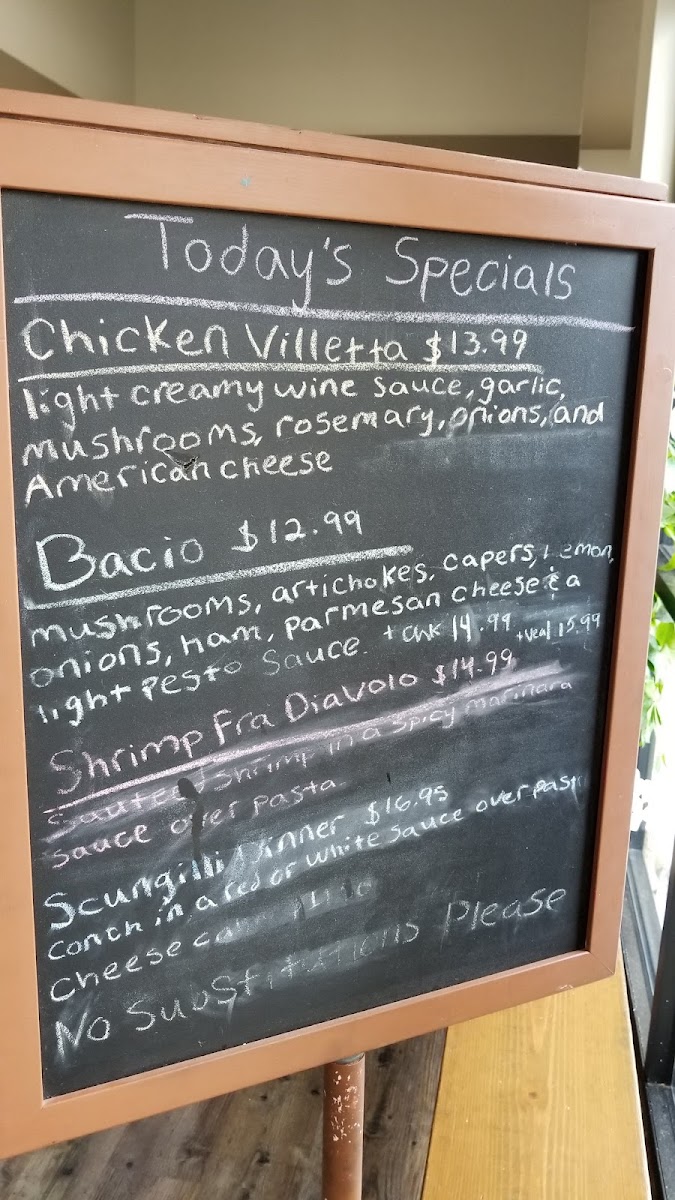 Today's Specials
Chicken Villetta $13.99
light creamy wine sauce, garlic,
mushrooms, rosemary, onions, and
American cheese
Bacio $12.99
mushrooms, artichokes, capers, lemon,
onions, ham, parmesan cheese & a
light Pesto Sauce. + CHK 14.99 + veal 15.99
Shrimp Fra Diavolo $14.99
Sauteed shrimp in a spicy marinara
sauce over pasta.
Scungilli Dinner $16.95
conch in a red or white sauce over pasta
cheese
No Substitutions Please